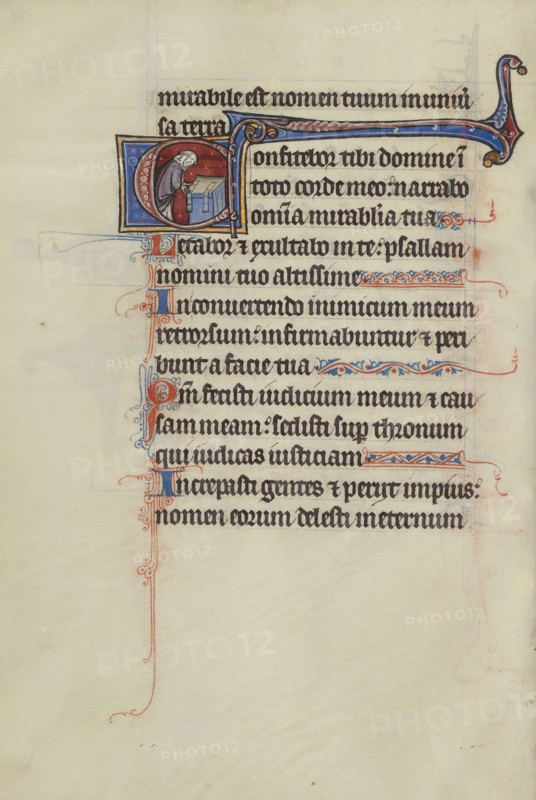 mirabile est nomen tuum in uniũ
sa terra
Confitebor tibi domine ĩ
toto corde meo: narrabo
omĩa mirabĺia tua
Letabor ⁊ exultabo in te: psallam
nomini tuo altissime
In conuertendo inimicum meum
retrorsum: infirmabuntur ⁊ peri
bunt a facie tua
Qm̃ fecisti iudicium meum ⁊ cau
sam meam: sedisti sup̱ thronum
qui iudicas iusticiam
Increpasti gentes ⁊ periit impius:
nomen eorum delesti in eternum
PHOTO12